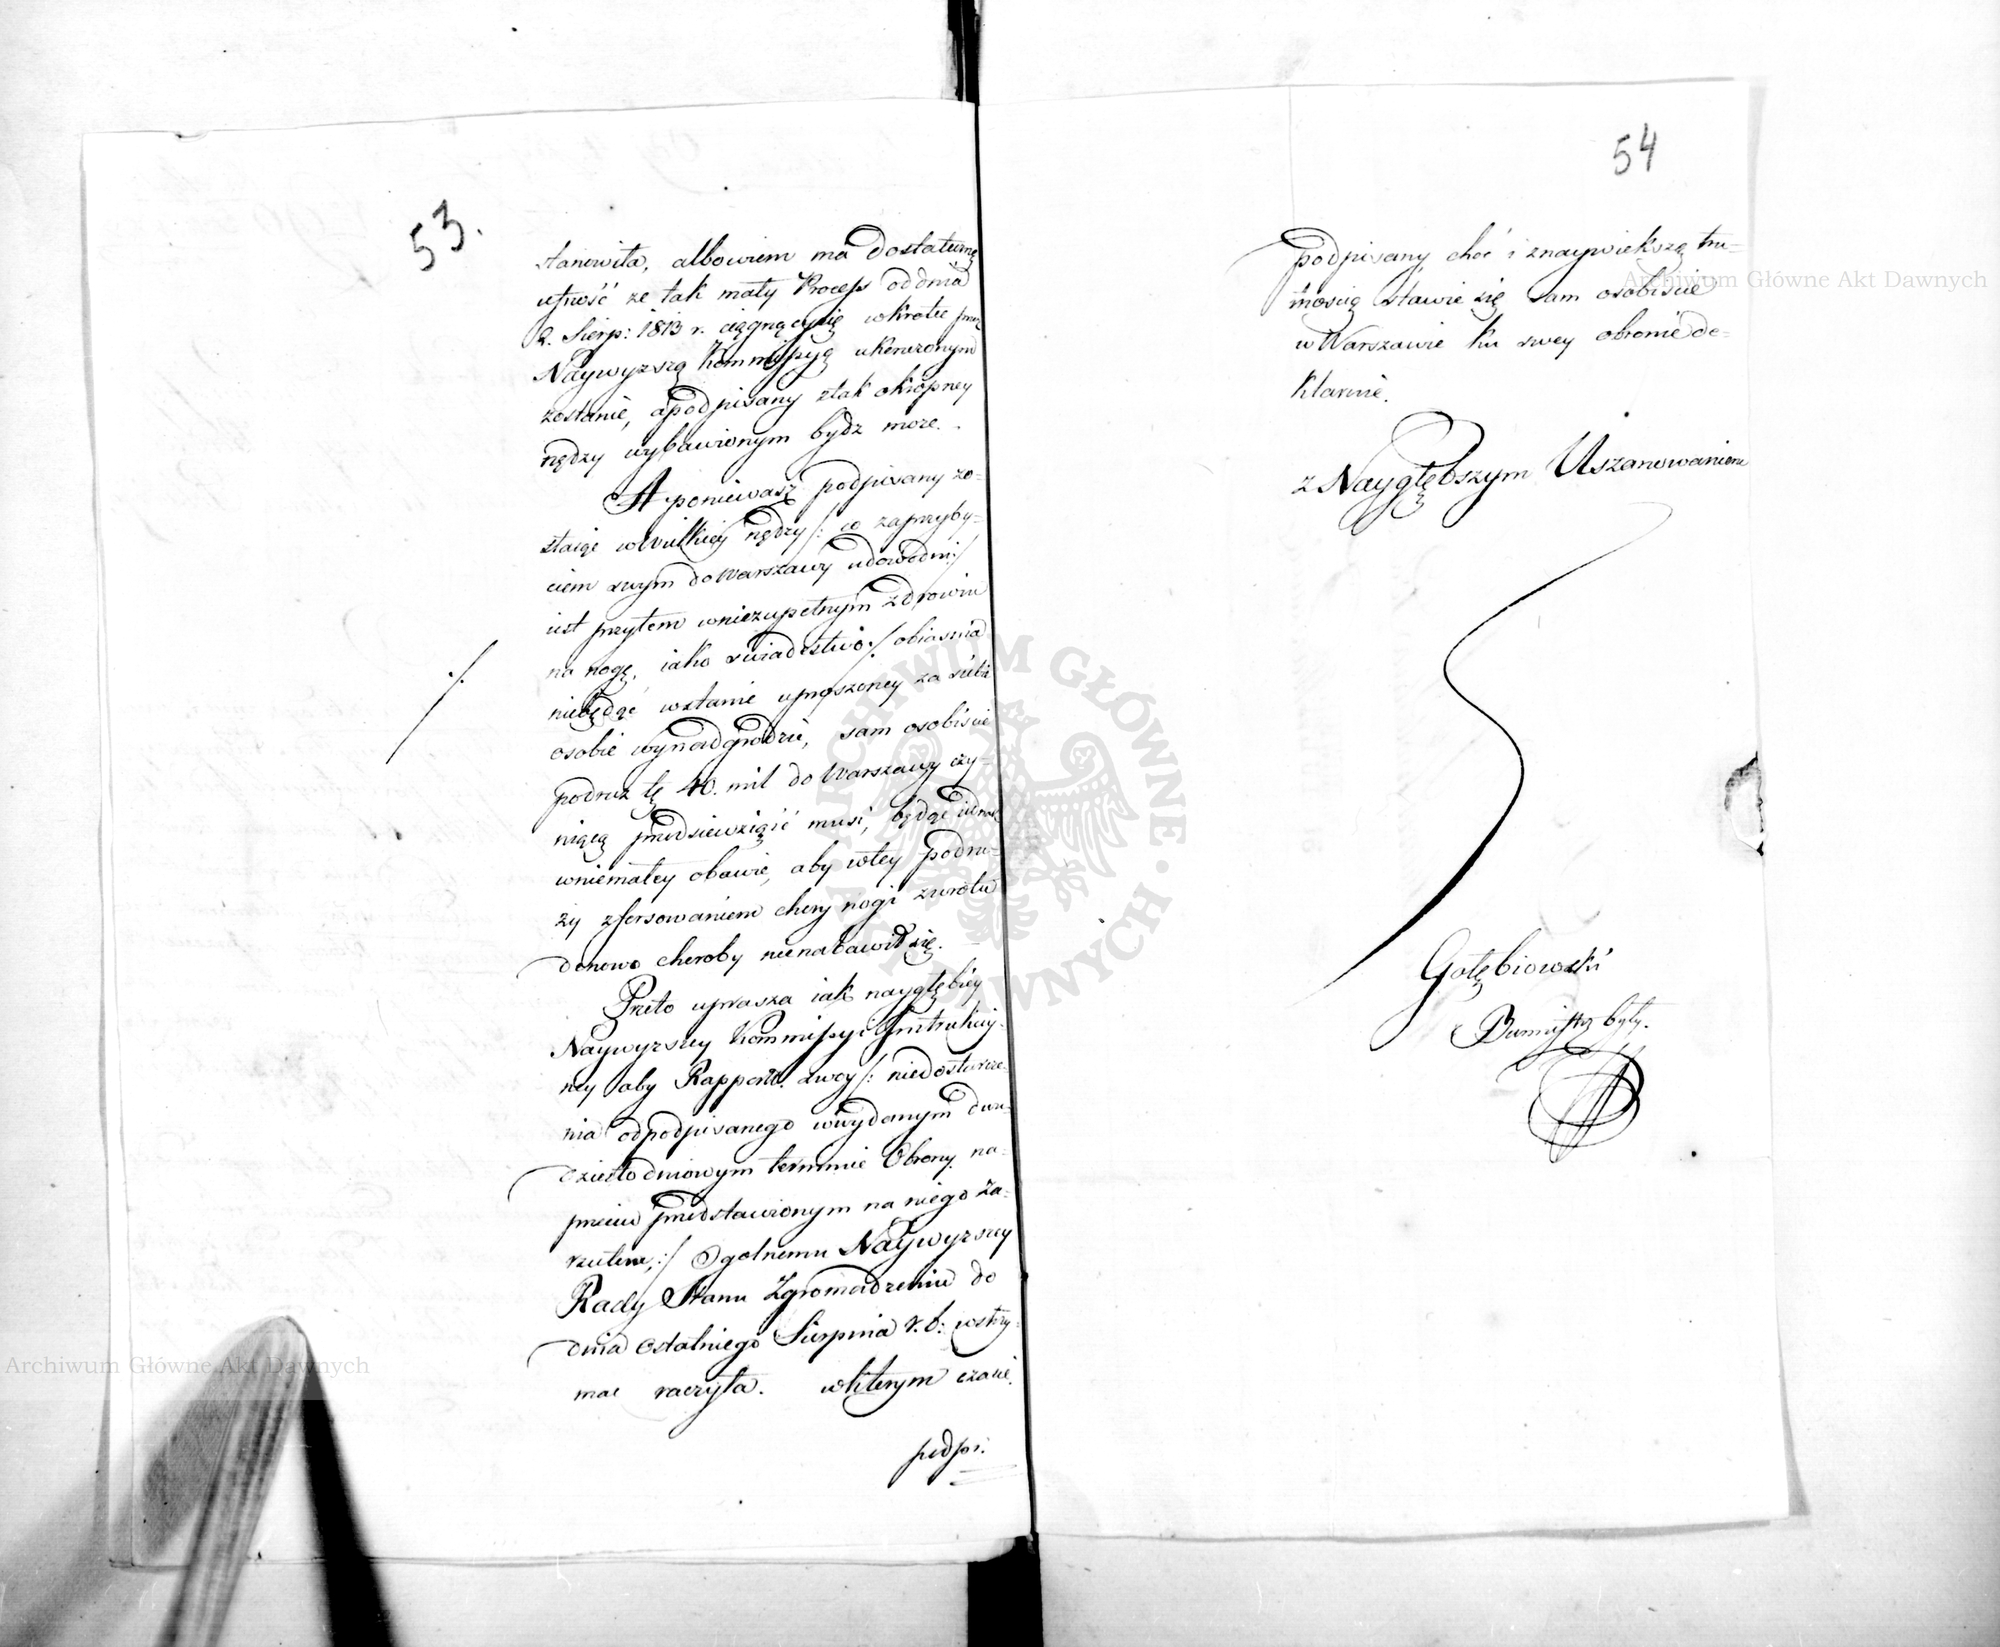 53.
stanowiła, albowiem ma dostateczną
ufność że tak mały Process od dnia
2. Sierp: 1813 r. ciągnący się wkrotce przez
Naywyzszą Kommissyą ukończonym
zostanie, a podpisany z tak okropney
nędzy wybawionym bydz moze.
A poniewasz podpisany zo-
staiąc w wielkiey nędzy /: co za przyby-
ciem swym do Warszawy udowodni :/
iest przytem w niezupełnym zdrowiu
na nogę, iako swiadectwo ./. obiasnia
niebędąc wstanie uproszoney za siebie
osobie wynadgrodzić, sam osobiscie
podruż tę 40. mil do Warszawy czy-
niącą przedsiewziąść musi, będąc iednak
w niemałey obawie, aby w tey podru-
ży zforsowaniem chorey nogi zwrotu
do nowo choroby nienabawił się.
./.
Przeto uprasza iak naygłębiey
Naywyzszey Kommissyi Instrukcyi-
ney aby Rapport swoy /: niedostarcze-
nia od podpisanego w wydanym dwu-
dziesto dniowym terminie Obrony na-
przeciw przedstawionym na niego Za-
rzutem, :/ Ogolnemu Naywyzszey
Rady Stanu Zgromadzeniu do
dnia ostatniego Sierpnia r. b. wstrzy-
mac raczyła. w ktorym czasie
podpi.
54
podpisany choć i z naywiększą tru-
dnoscią stawie się sam osobiscie
w Warszawie ku swey obronie de-
klaruie.
z Naygłębszym Uszanowaniem
Gołębiowski
Burmistrz były.
Archiwum Główne Akt Dawnych
Archiwum Główne Akt Dawnych
ARCHIWUM GŁÓWNE · AKT DAWNYCH ·